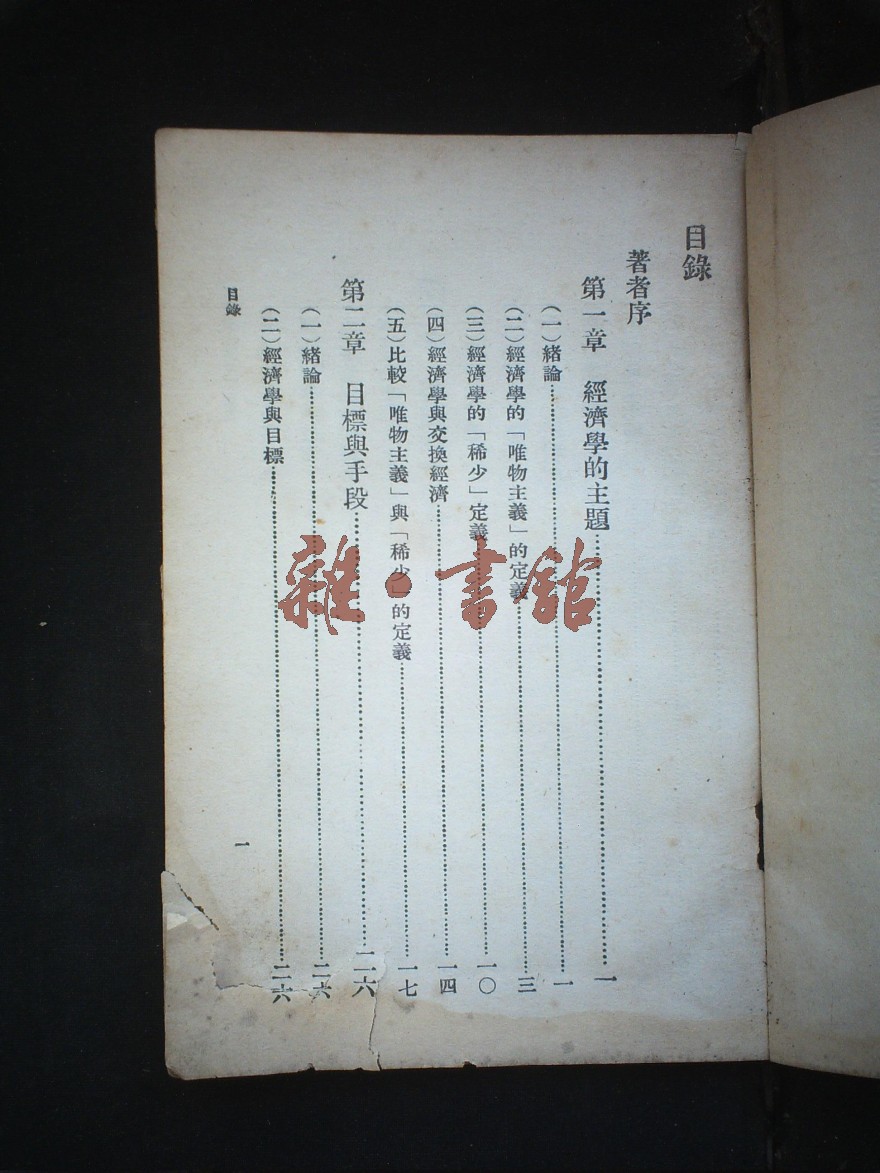 目錄
著者序
第一章　經濟學的主題…………一
（一）緒論…………一
（二）經濟學的「唯物主義」的定義…………三
（三）經濟學的「稀少」定義…………一〇
（四）經濟學與交換經濟…………一四
（五）比較「唯物主義」與「稀少」的定義…………一七
第二章　目標與手段…………二六
（一）緒論…………二六
（二）經濟學與目標…………二六
目錄
一
雜·書館